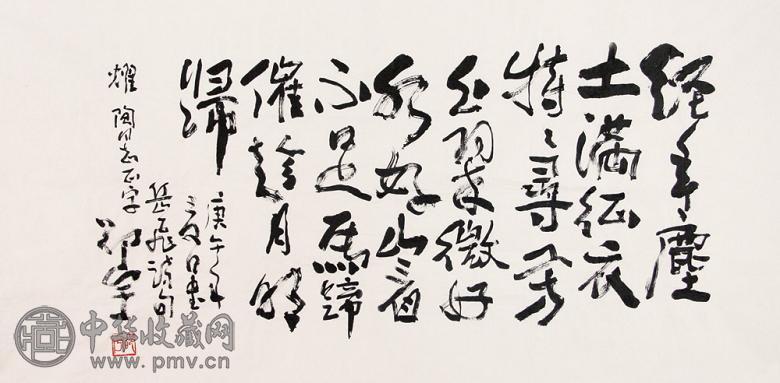 經年塵
土滿征衣
特々尋芳
上翠微好
水好山看
不足馬蹄
催趁月明
歸
庚午年
日書
岳飛詩句
耀陶同志正字
中华收藏网
www.pmv.cn